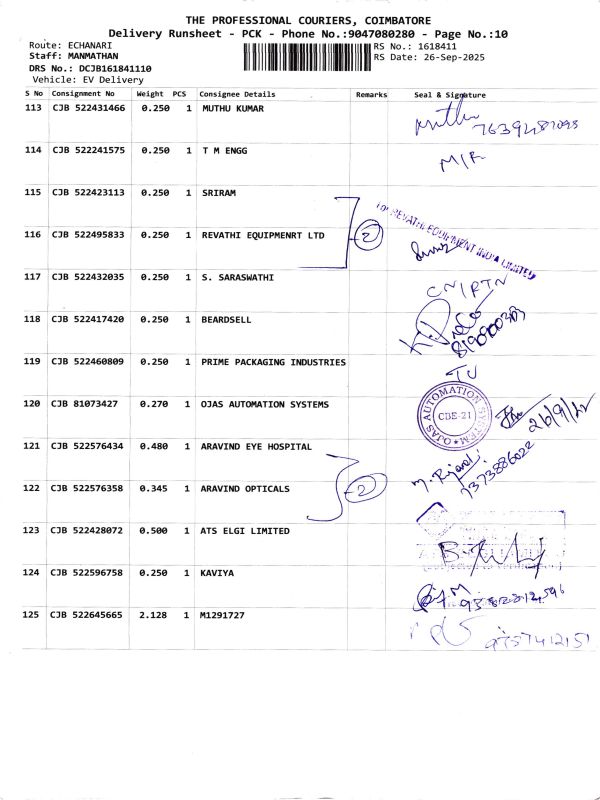 THE PROFESSIONAL COURIERS, COIMBATORE
Delivery Runsheet - PCK - Phone No.:9047080280 - Page No.:10
Route: ECHANARI
RS No.: 1618411
Staff: MANMATHAN
RS Date: 26-Sep-2025
DRS No.: DCJB161841110
Vehicle: EV Delivery
S No Consignment No Weight PCS Consignee Details Remarks Seal & Signature
113 CJB 522431466 0.250 1 MUTHU KUMAR
114 CJB 522241575 0.250 1 T M ENGG
115 CJB 522423113 0.250 1 SRIRAM
116 CJB 522495833 0.250 1 REVATHI EQUIPMENRT LTD 2
For REVATHI EQUIPMENT INDIA LIMITED
117 CJB 522432035 0.250 1 S. SARASWATHI CN/RTN
118 CJB 522417420 0.250 1 BEARDSELL
119 CJB 522460809 0.250 1 PRIME PACKAGING INDUSTRIES
120 CJB 81073427 0.270 1 OJAS AUTOMATION SYSTEMS
OJAS AUTOMATION SYSTEM
CBE-21
26/9/
121 CJB 522576434 0.480 1 ARAVIND EYE HOSPITAL
7373886022
122 CJB 522576358 0.345 1 ARAVIND OPTICALS 2
123 CJB 522428072 0.500 1 ATS ELGI LIMITED
124 CJB 522596758 0.250 1 KAVIYA
125 CJB 522645665 2.128 1 M1291727